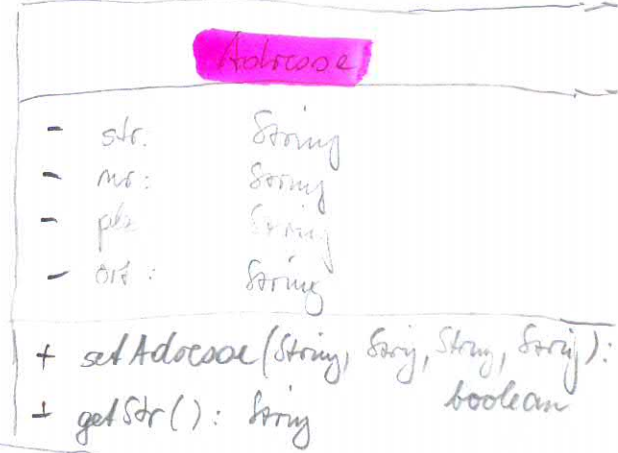 Adresse
- str: String
- nr: String
- plz String
- ort: String
+ setAdresse(String, String, String, String):
boolean
+ getStr(): String